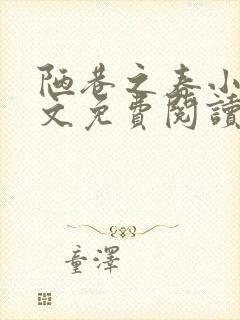 陋巷之春小
文免費閱讀
童澤